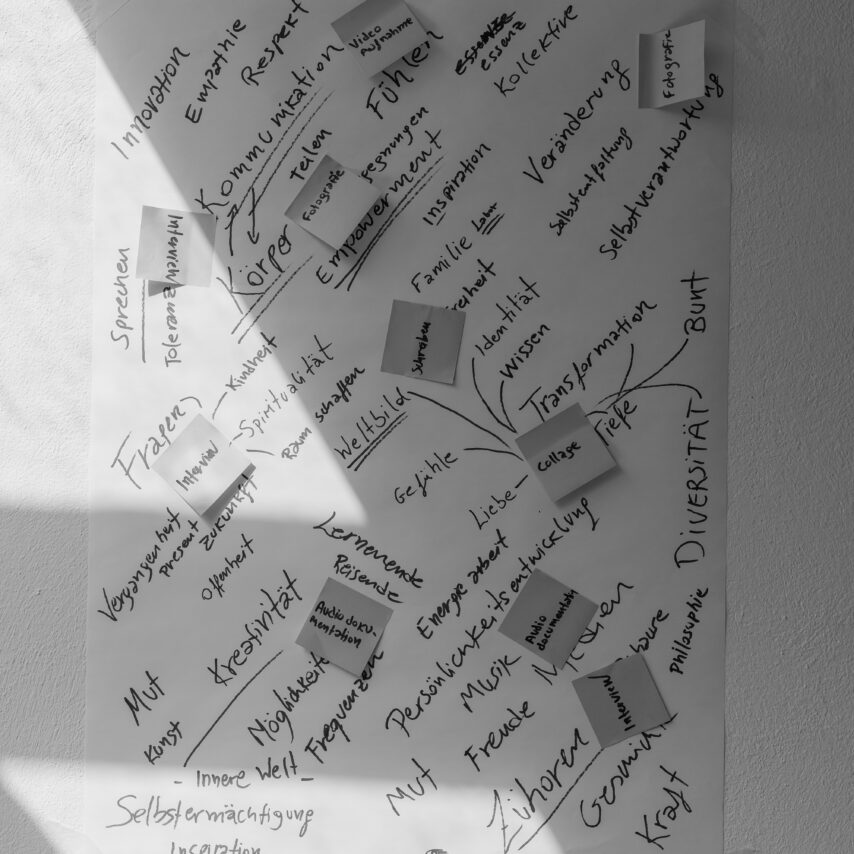 Innovation
Empathie
Respekt
Video
Aufnahme
Fühlen
essenz
Kollektive
Fotografie
Kommunikation
Teilen
Veränderung
Selbstentfaltung
Selbstverantwortung
Fotografie
Empowerment
Inspiration
Labor
Familie
Sprechen
Interview
Toleranz
Körper
Schreiben
Identität
Wissen
Transformation
BUNT
Kindheit
Spiritualität
Raum schaffen
Weltbild
Tiefe
DIVERSITÄT
Fragen
Interview
Gefühle
Collage
Liebe
Vergangenheit
present
Zukunft
Offenheit
Lernenende
Reisende
Energie arbeit
Persönlichkeitsentwicklung
Kreativität
Audiodoku-
mentation
Audio
documentatn
philosophie
Mut
Kunst
Möglichkeite
Frequenzen
Musik
Freude
Interview
- Innere Welt -
Mut
Zuhören
Geschicht
Kraft
Selbstermächtigung
Inspiration